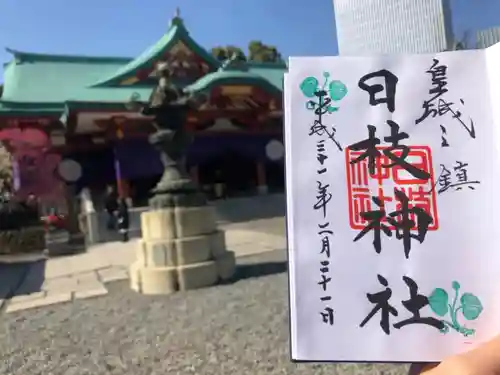 皇城之鎮
日枝神社
平成三十一年二月二十一日